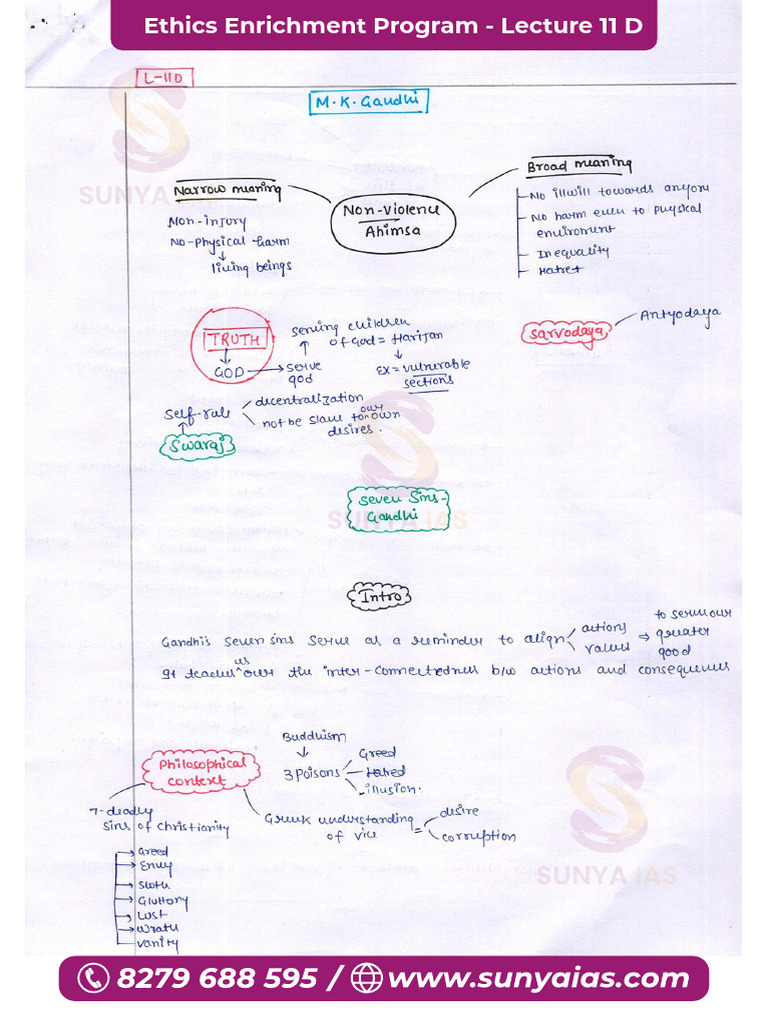 Ethics Enrichment Program - Lecture 11 D
L-11D
M.K.Gandhi
SUNYA IAS
Narrow meaning
Non-injury
No-physical harm
↓
living beings
Non-Violence
Ahimsa
Broad meaning
No illwill towards anyone
No harm even to physical
enviroment
Inequality
Hatret
TRUTH
↓
GOD → serve
god
↑
serving children
of God = Harijan
↓
Ex = vulnerable
sections
Sarvodaya
Antyodaya
Self-rule
decentralization
not be slave to our own
desires.
↑
Swaraj
SUNYA IAS
Seven Sins-
Gandhi
Intro
Gandhis seven sins serve as a reminder to align
actions
values
⇒
to serve our
greater
good
It teaches us our the inter-connectedness b/w actions and consequences
Philosophical
context
Buddhism
↓
3 Poisons
Greed
Hatred
illusion.
7-deadly
sins of Christianity
Greed
Envy
Sloth
Gluttory
Lust
Wrath
Vanity
Greek understanding
of vice
=
desire
corruption
SUNYA IAS
8279 688 595 / www.sunyaias.com